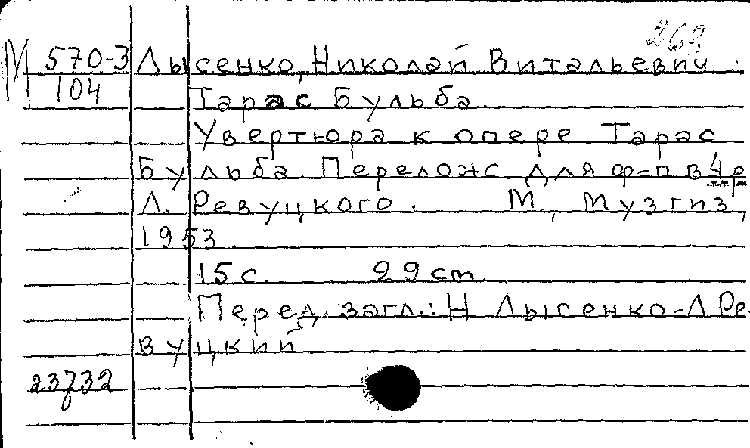 269
М 570-3 Лысенко, Николай Витальевич.
104 Тарас Бульба
Увертюра к опере Тарас
Бульба. Перелож. для ф-п в 4 р
Л. Ревуцкого. М., Музгиз,
1953.
15 с. 29 cm
Перед загл.: Н Лысенко-Л Ре
вуцкий
23732